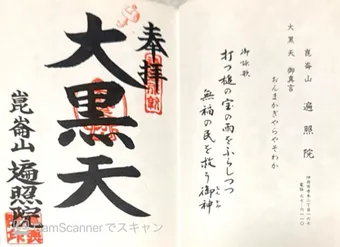 奉拝
大黒天
崑崙山 遍照院
CamScannerでスキャン
崑崙山 遍照院
大黒天 御真言
おんまかぎゃらやそわか
御詠歌
打つ槌の宝の雨をふらしつつ
無福の民を救う御神